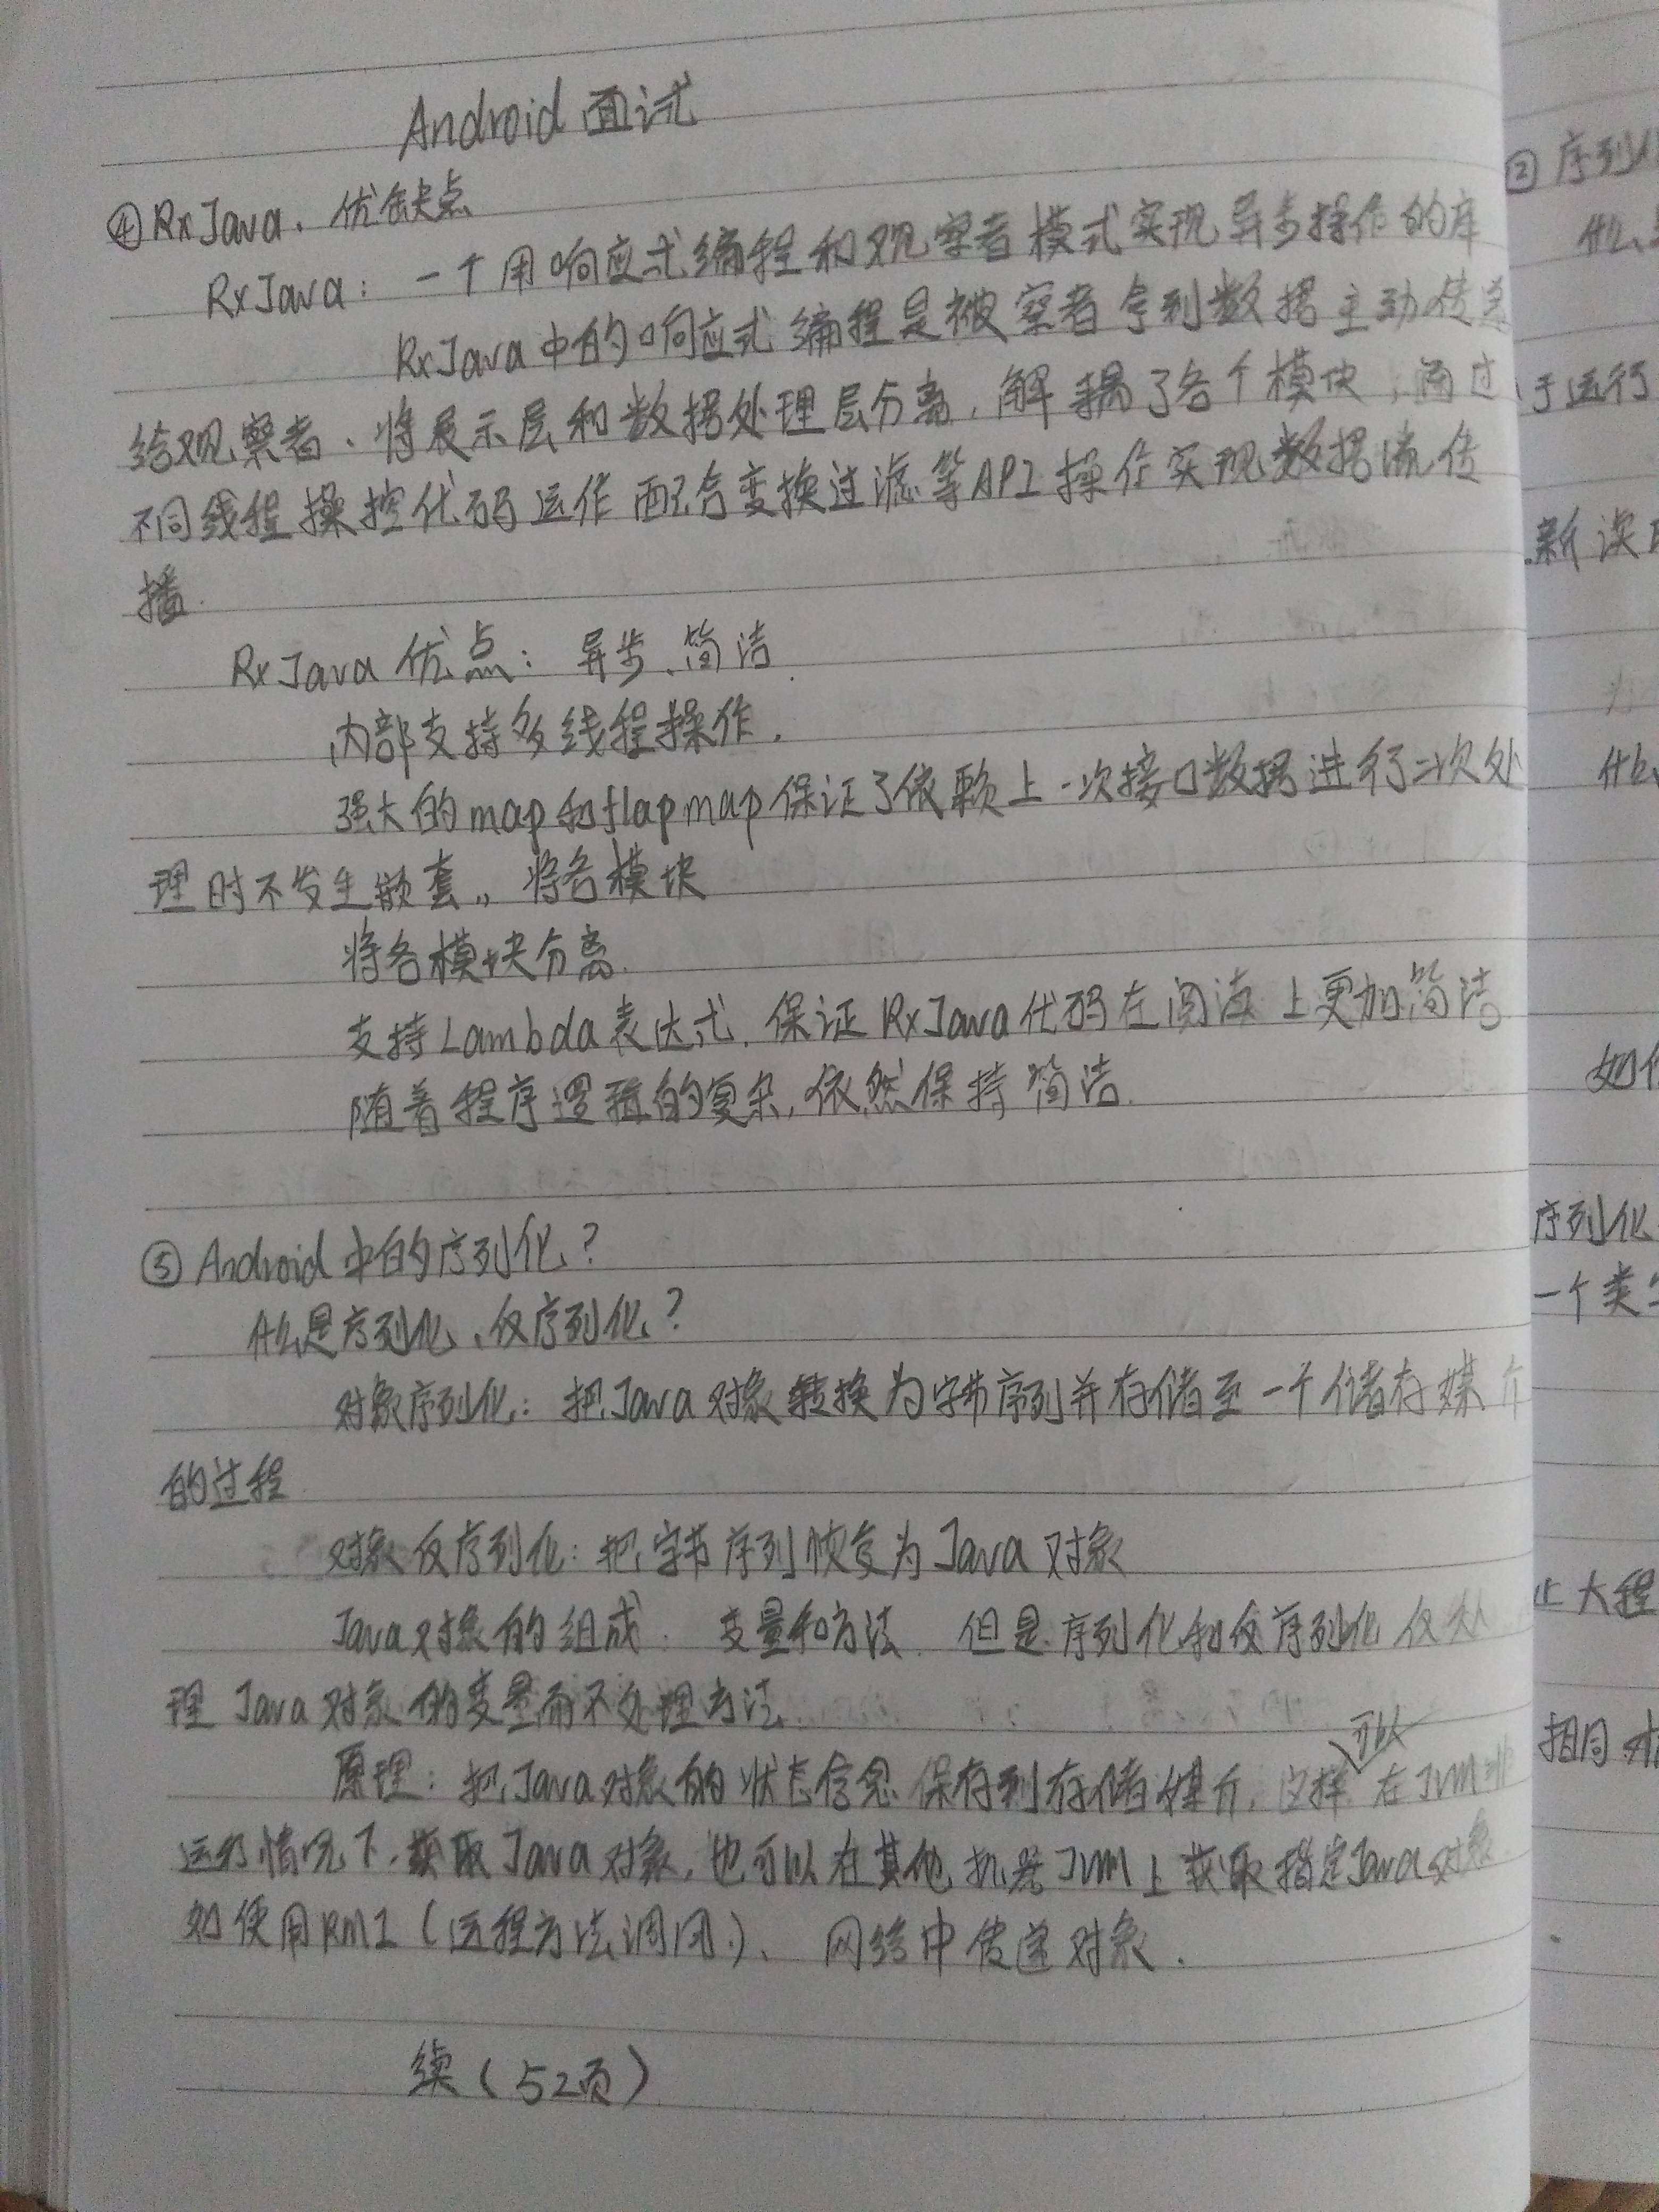 Android 面试
④RxJava、优缺点
RxJava: 一个用响应式编程和观察者模式实现异步操作的库
RxJava中的响应式编程是被察者拿到数据主动传递
给观察者、将展示层和数据处理层分离,解耦了各个模块,通过
不同线程操控代码运作配合变换过滤等API操作实现数据流传
播.
RxJava 优点: 异步、简洁.
内部支持多线程操作.
强大的map和flapmap保证了依赖上一次接口数据进行二次处
理时不发生嵌套,, 将各模块
将各模块分离.
支持Lambda表达式,保证RxJava代码在阅读上更加简洁
随着程序逻辑的复杂,依然保持简洁.
⑤Android中的序列化?
什么是序列化、反序列化?
对象序列化: 把Java对象转换为字节序列并存储至一个储存媒介
的过程
对象反序列化: 把字节序列恢复为Java对象
Java对象的组成: 变量和方法. 但是序列化和反序列化仅处
理Java对象的变量而不处理方法.
可以
原理: 把Java对象的状态信息保存到存储媒介,这样 在JVM非
运行情况下,获取Java对象,也可以在其他机器JVM上获取指定Java对象
如使用RMI(远程方法调用.)、网络中传递对象.
续(52页)
② 序列化
什么
于运行
新读
什么
如何
序列化
一个类
大程
相同